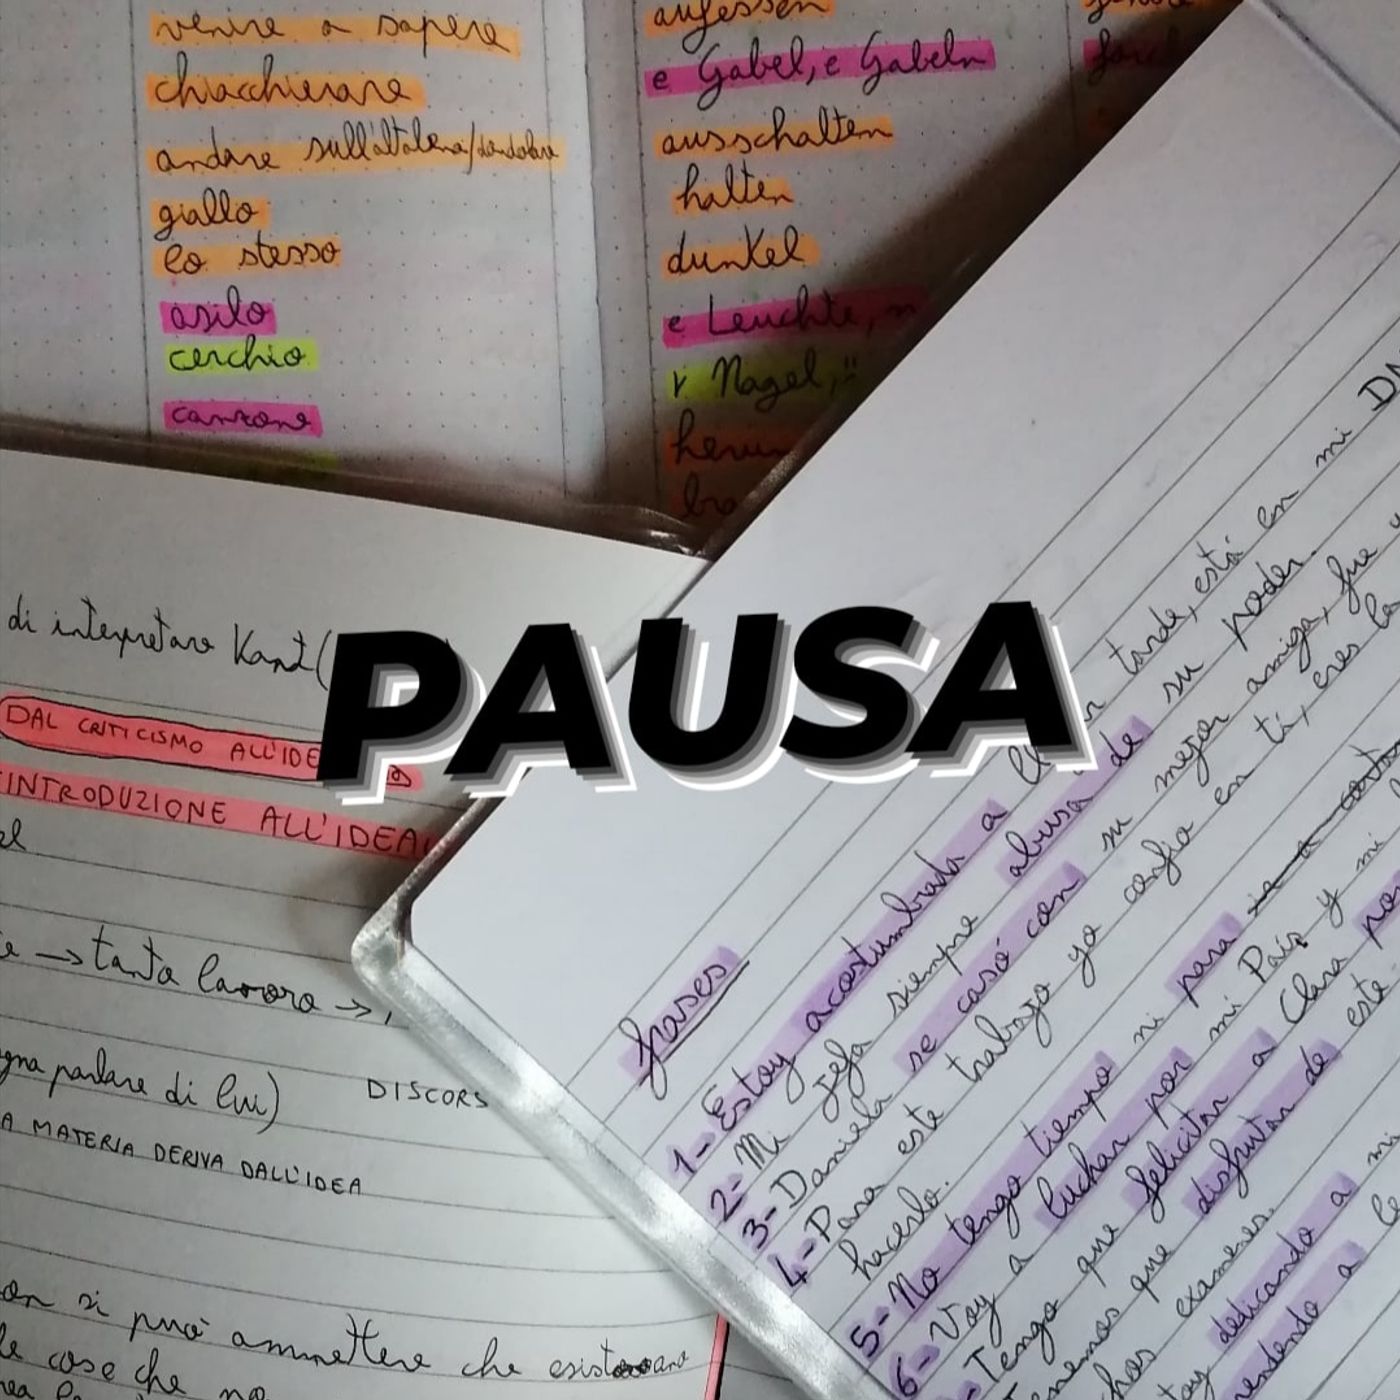 venire a sapere
chiacchierare
andare sull'altalena/dondolare
giallo
lo stesso
asilo
cerchio
canzone
aufessen
e Gabel, e Gabeln
ausschalten
halten
dunkel
e Leuchte, n
r Nagel, ¨
di interpretare Kant (
DAL CRITICISMO ALL'IDE
INTRODUZIONE ALL'IDEA
→ tanta lavoro →
parlare di lui)
DISCORS
A MATERIA DERIVA DALL'IDEA
on si può ammettere che esistano
le cose che no
PAUSA
frases
1- Estoy acostumbrada a tarde, está en mi DN
2- Mi jefa siempre abusa de su poder.
3- Daniela se casó con su mejor amiga, fue
4- Para este trabajo yo confío en ti, eres
hacerlo.
5- No tengo tiempo ni para
6- Voy a luchar por mi País y mi
- Tengo que felicitar a Clara por
nemos que disfrutar de este
hos exámenes.
toy dedicando a
endendo a